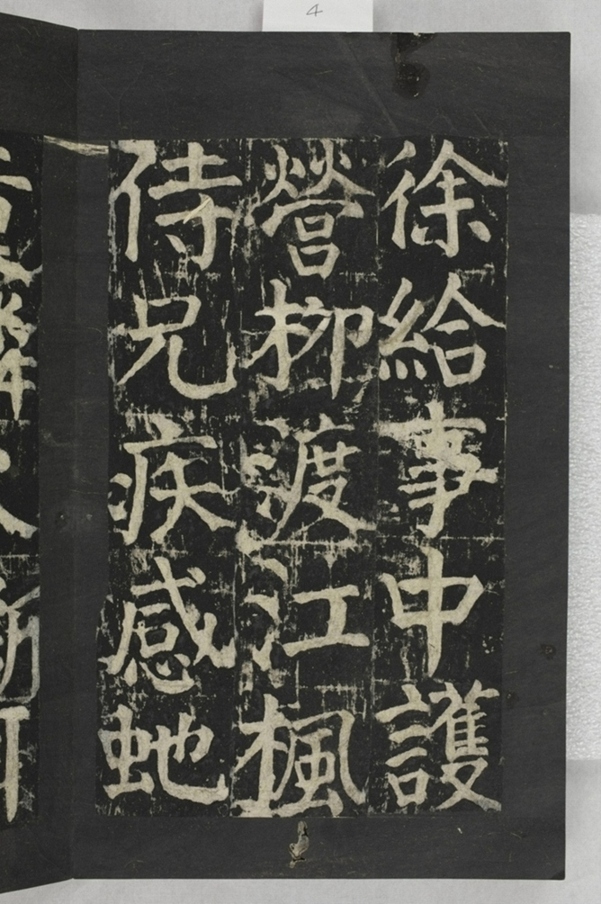 徐給事中護
營柳渡江楓
侍兄疾感虵
4